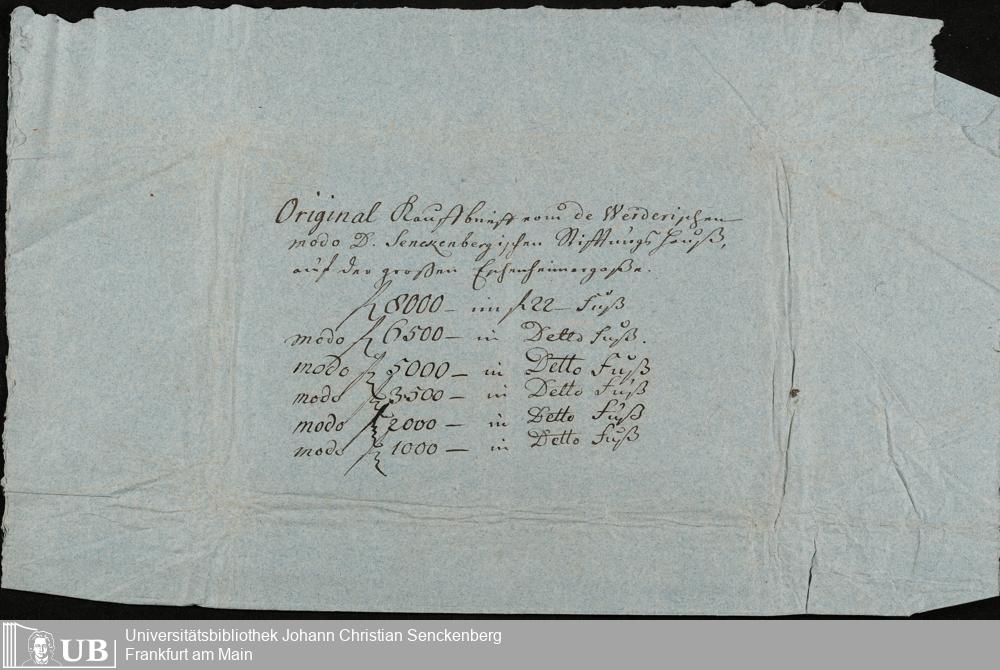 Original Kauffbrieff vom de Werderischen
modo D. Senckenbergischen Stifftungs Hauß,
auf der großen Eschenheimergaße.
f 8000 — im f 22 — Fuß
modo f 6500 — in Detto Fuß.
modo f 5000 — in Detto Fuß
modo f 3500 — in Detto Fuß
modo f 2000 — in Detto Fuß
modo f 1000 — in Detto Fuß
UB
Universitätsbibliothek Johann Christian Senckenberg
Frankfurt am Main